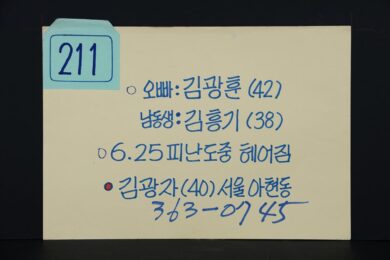 211
○ 오빠: 김광훈 (42)
남동생: 김흥기 (38)
○ 6.25 피난도중 헤어짐
● 김광자 (40) 서울 아현동
363-0745